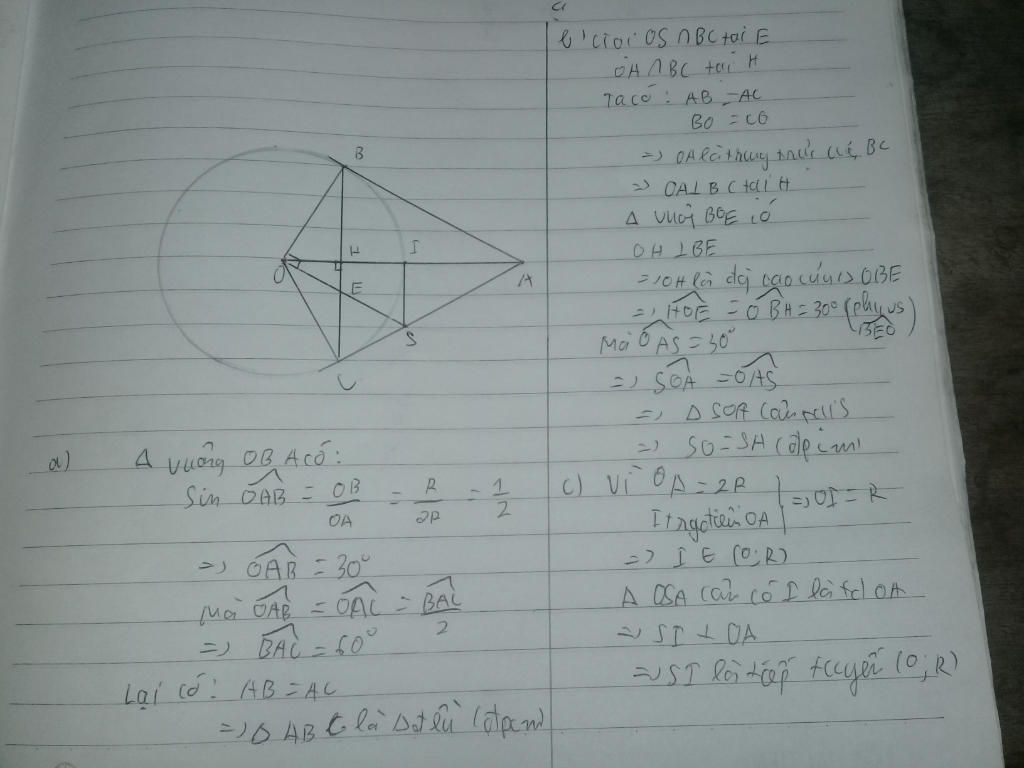 B
H
I
O
A
E
S
C
a) Δ vuông OBA có:
Sin OAB = OB/OA = R/2R = 1/2
=> OAB = 30°
Mà OAB = OAC = BAC/2
=> BAC = 60°
Lại có: AB = AC
=> Δ ABC là Δ đều (đpcm)
b) Gọi OS ∩ BC tại E
OA ∩ BC tại H
Ta có: AB = AC
BO = CO
=> OA là trung trực của BC
=> OA ⊥ BC tại H
Δ vuông BOE có
OH ⊥ BE
=> OH là đg cao của Δ OBE
=> HOE = OBH = 30° (phụ vs BEO)
Mà OAS = 30°
=> SOA = OAS
=> Δ SOA cân tại S
=> SO = SA (đpcm)
c) Vì OA = 2R
I trên OA
=> OI = R
=> I ∈ (O;R)
Δ OSA cân có I là tđ OA
=> SI ⊥ OA
=> SI là tiếp tuyến (O;R)